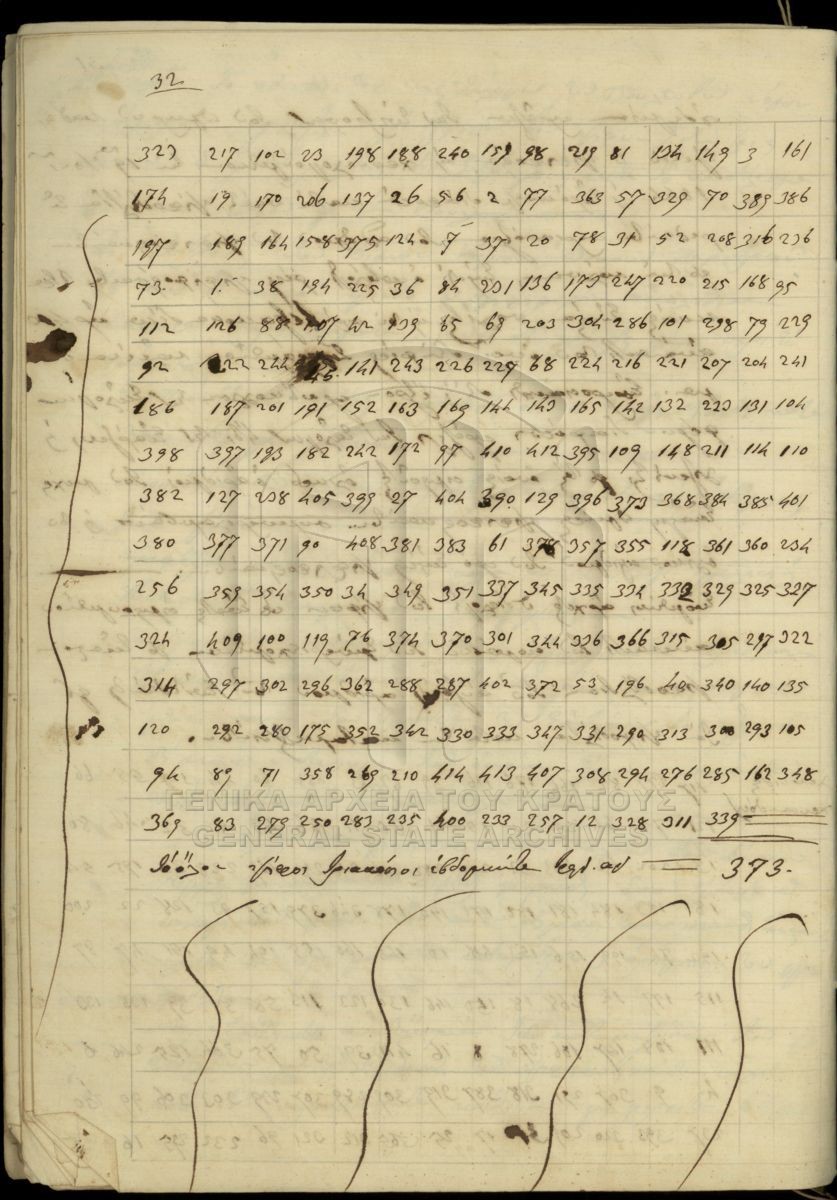 32
323 217 102 23 198 188 240 159 98 219 81 134 149 3 161
174 19 170 206 137 26 56 2 77 363 57 329 70 389 386
197 189 164 158 375 124 37 20 78 31 52 208 316 236
73 1 38 194 225 36 84 231 136 173 247 220 215 168 95
112 126 88 107 42 139 65 69 203 304 286 101 298 79 229
92 222 244 141 243 226 227 68 224 216 221 207 204 241
186 187 201 191 152 163 169 144 143 165 142 132 223 131 104
398 397 193 182 242 172 97 410 412 395 109 148 211 114 110
382 127 238 405 399 27 404 390 129 396 373 368 384 385 401
380 377 371 90 408 381 383 61 378 357 355 118 361 360 234
256 359 354 350 34 349 351 337 345 335 334 332 329 325 327
324 409 100 119 76 374 370 301 344 336 366 315 305 297 322
314 297 302 296 362 288 287 402 372 53 196 40 340 140 135
120 292 280 175 352 342 330 333 347 331 290 313 300 293 105
94 89 71 358 269 210 414 413 407 308 294 276 285 162 348
ΓΕΝΙΚΑ ΑΡΧΕΙΑ ΤΟΥ ΚΡΑΤΟΥΣ
369 83 279 250 283 235 400 233 257 12 328 311 339
GENERAL STATE ARCHIVES
ψῆφοι τριακόσιοι ἑβδομήντα 373.